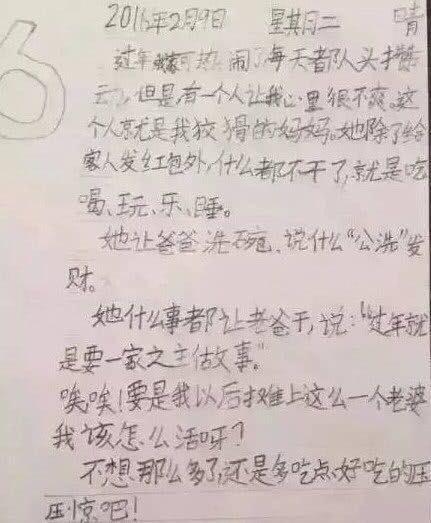 6
2016年2月9日 星期二 晴
过年我家可热闹了每天都人头攒
云了,但是有一个人让我心里很不爽。这
个人就是我狡猾的妈妈。她除了给
客人发红包外,什么都不干了,就是吃
喝、玩、乐、睡。
她让爸爸洗碗,说什么“公洗”发
财。
她什么事都让老爸干,说:“过年就
是要一家之主做故事。”
唉唉!要是我以后摊上这么一个老婆
我该怎么活呀?
不想那么多了,还是多吃点好吃的压
压惊吧!